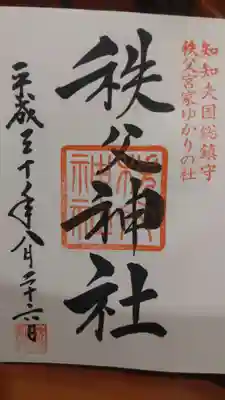 知知夫国総鎮守
秩父宮家ゆかりの社
秩父神社
平成三十年八月二十六日